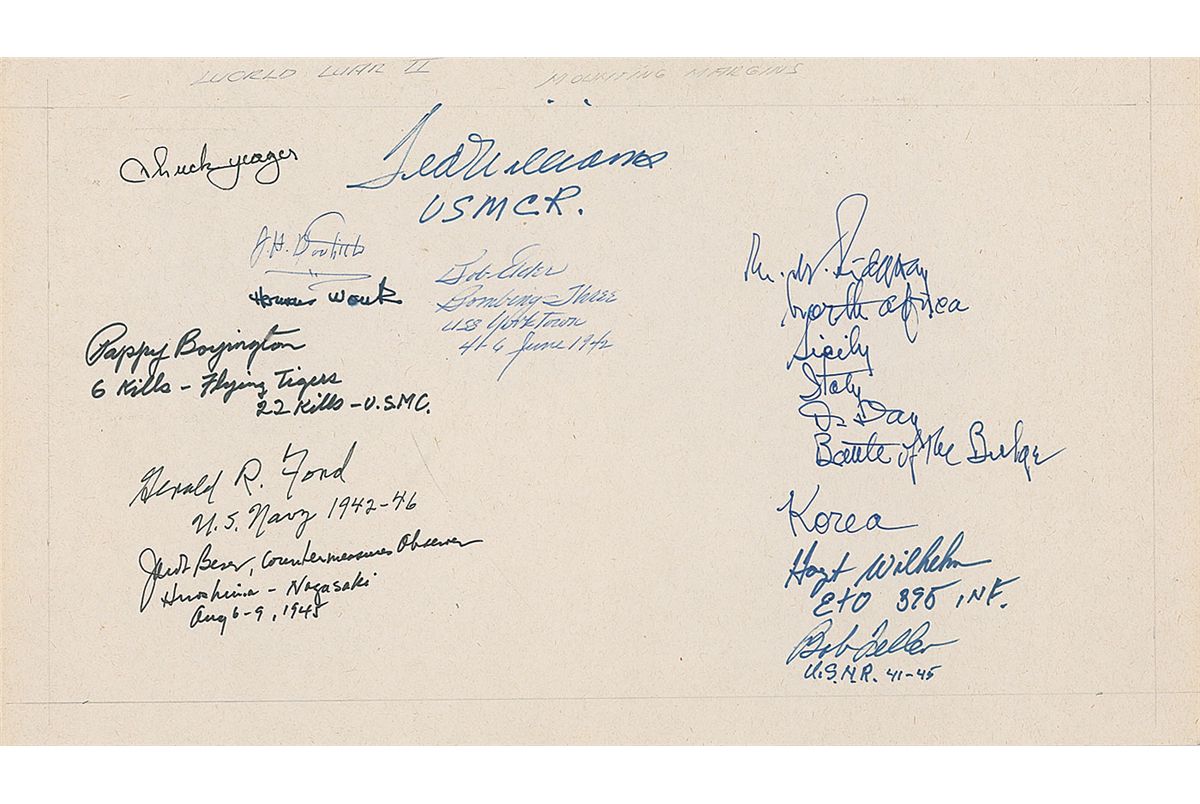 WORLD WAR II
MOUNTING MARGINS
Chuck Yeager
Ted Williams
USMCR.
J.H. Doolittle
Herman Wouk
Bob Elder
Bombing Three
USS Yorktown
4-6 June 1942
Pappy Boyington
6 Kills - Flying Tigers
22 Kills - U.S.M.C.
Gerald R. Ford
U.S. Navy 1942-46
Jacob Beser, Countermeasures Observer
Hiroshima - Nagasaki
Aug 6-9, 1945
M. B. Ridgway
North Africa
Sicily
Italy
D-Day
Battle of the Bulge
Korea
Hoyt Wilhelm
ETO 395 INF.
Bob Feller
U.S.N.R. 41-45